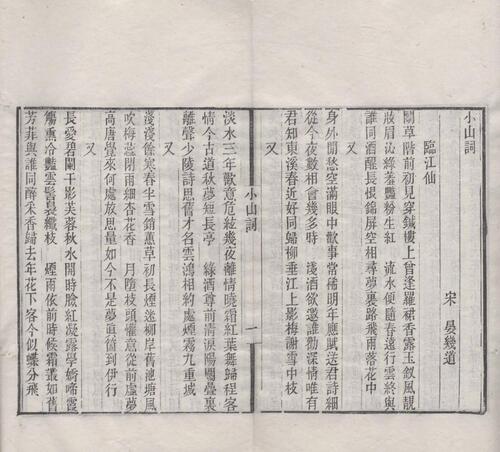 小山詞
宋 晏幾道
臨江仙
鬭草階前初見穿鍼樓上曾逢羅裙香露玉釵風靚
粧眉沁綠羞豔粉生紅 流水便隨春遠行雲終與
誰同酒醒長恨錦屏空相尋夢裏路飛雨落花中
又
身外閒愁空滿眼中歡事常稀明年應賦送君詩細
從今夜數相會幾多時 淺酒欲邀誰勸深情唯有
君知東溪春近好同歸柳垂江上影梅謝雪中枝
又
小山詞
一
淡水三年歡意危絃幾夜離情曉霜紅葉舞歸程客
情今古道秋夢短長亭 綠酒尊前清淚陽關疊裏
離聲少陵詩思舊才名雲鴻相約處煙霧九重城
又
淺淺餘寒春半雪銷蕙草初長煙迷柳岸舊池塘風
吹梅蕊閉雨細杏花香 月墮枝頭懽意從前虛夢
高唐覺來何處放思量如今不是夢眞箇到伊行
又
長愛碧闌干影芙蓉秋水開時臉紅凝露學嬌啼霞
觴熏冷豔雲髻裊纖枝 煙雨依前時候霜叢如舊
芳菲與誰同醉采香歸去年花下客今似蝶分飛